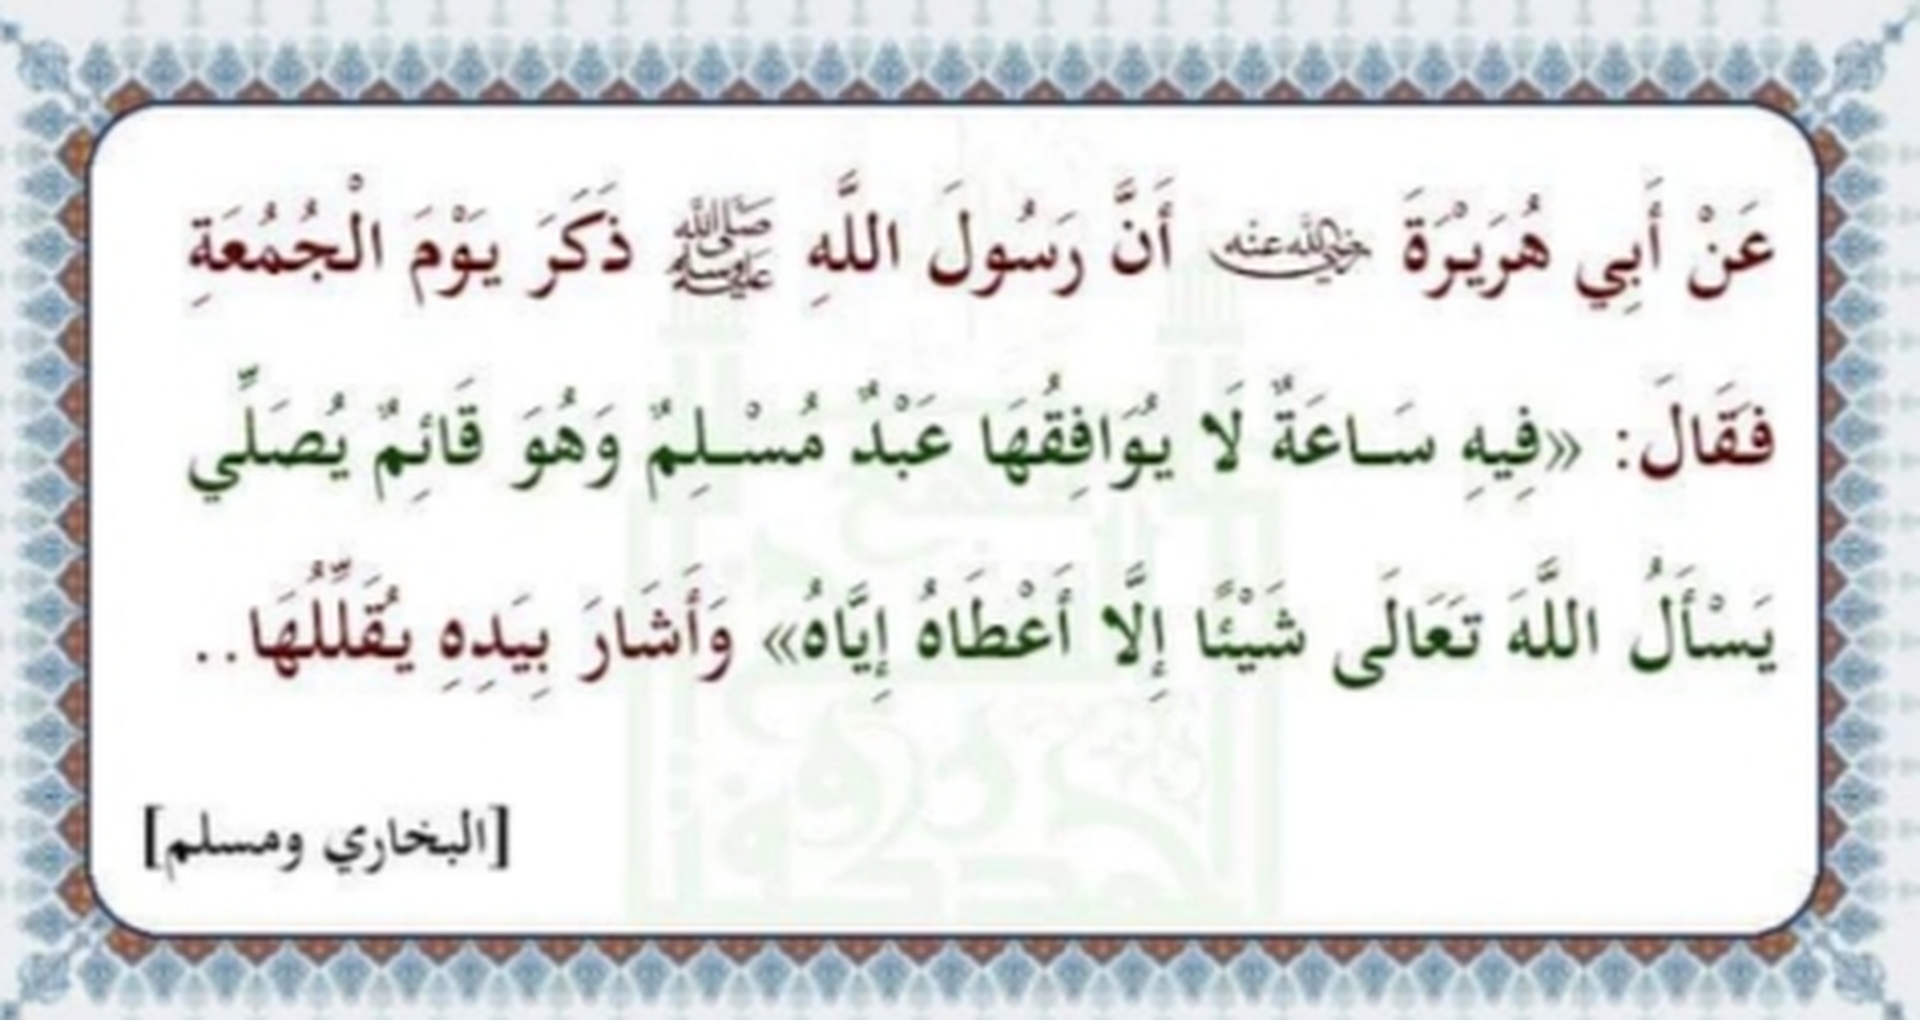 عَنْ أَبِي هُرَيْرَةَ رضي الله عنه أَنَّ رَسُولَ اللَّهِ ﷺ ذَكَرَ يَوْمَ الْجُمُعَةِ
فَقَالَ: «فِيهِ سَاعَةٌ لَا يُوَافِقُهَا عَبْدٌ مُسْلِمٌ وَهُوَ قَائِمٌ يُصَلِّي
يَسْأَلُ اللَّهَ تَعَالَى شَيْئًا إِلَّا أَعْطَاهُ إِيَّاهُ» وَأَشَارَ بِيَدِهِ يُقَلِّلُهَا..
[البخاري ومسلم]